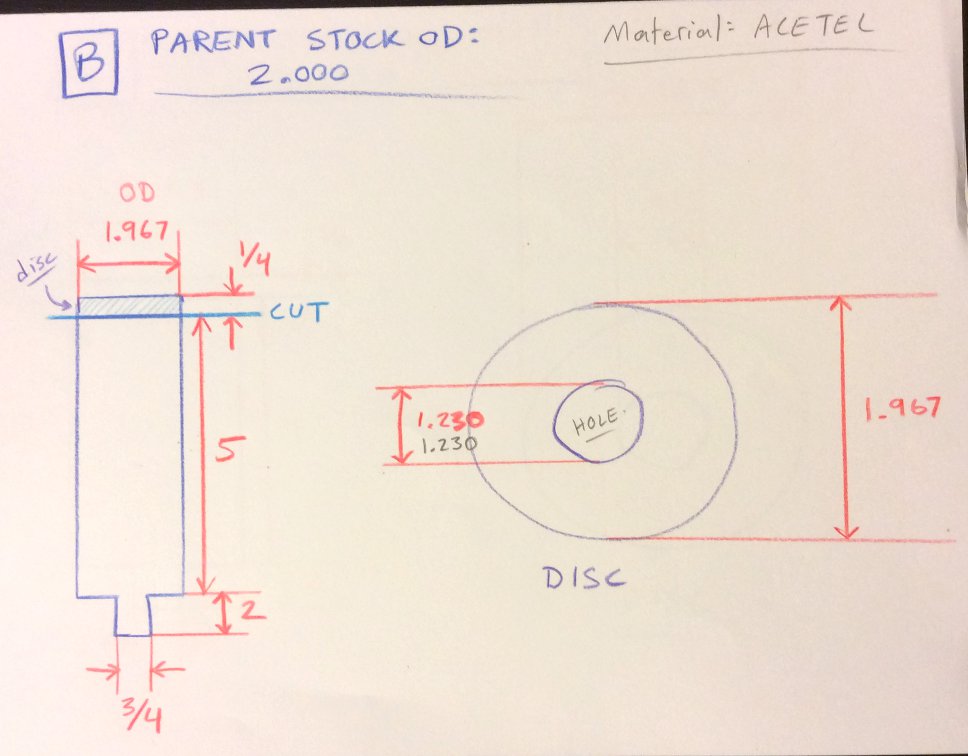 B
PARENT STOCK OD:
2.000
Material: ACETEL
OD
1.967
disc
1/4
CUT
5
2
3/4
1.230
1.230
HOLE.
1.967
DISC